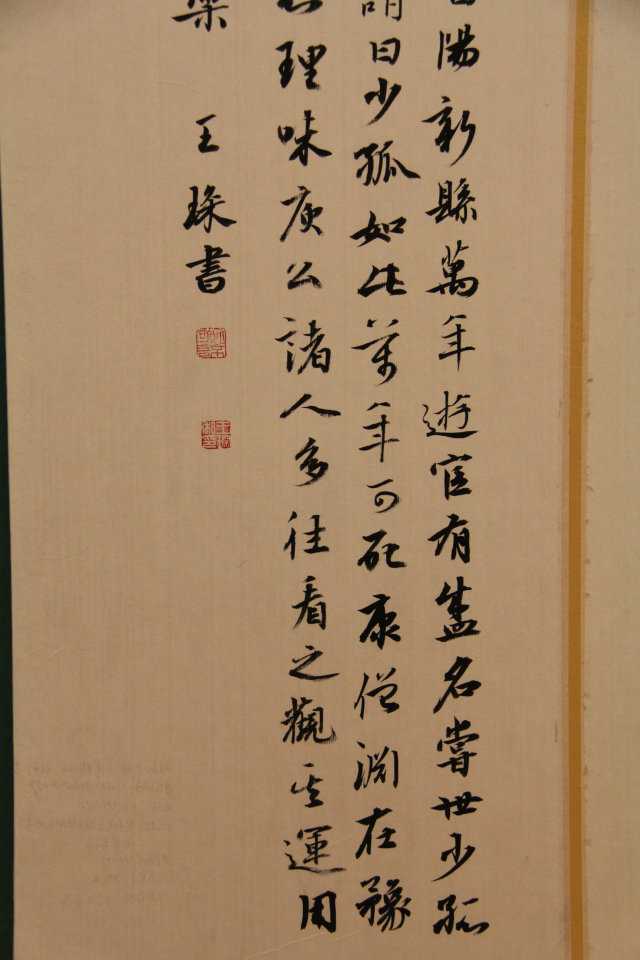 陽新縣萬年遊宦有盛名當世少孤
謂曰少孤如此萬年可死康僧淵在豫
理味庾公諸人多往看之觀其運用
樂 王琛書